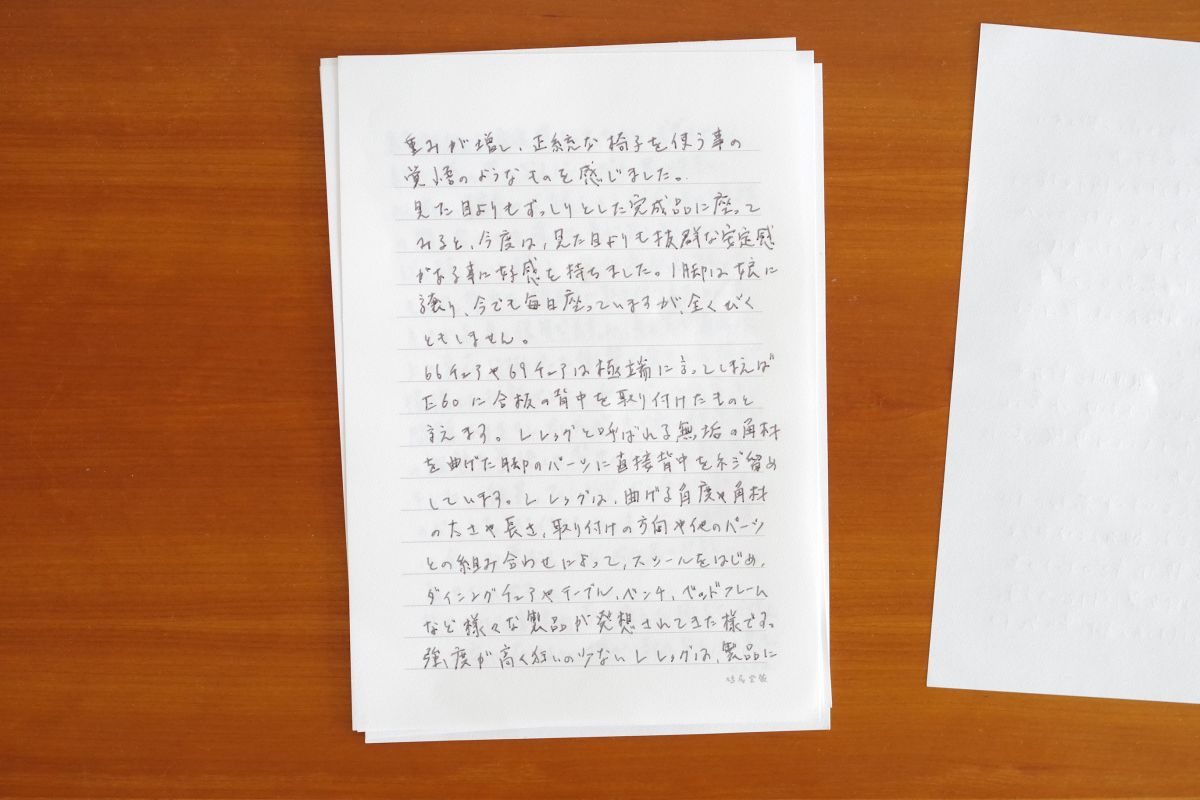 重みが増し、正統な椅子を使う事の
覚悟のようなものを感じました。
見た目よりもずっしりとした完成品に座って
みると、今度は、見た目よりも抜群な安定感
がある事に好感を持ちました。1脚は娘に
譲り、今でも毎日座っていますが、全くびく
ともしません。
66チェアや69チェアは極端に言ってしまえば
E60に合板の背中を取り付けたものと
言えます。Lレッグと呼ばれる無垢の角材
を曲げた脚のパーツに直接背中をネジ留め
しています。Lレッグは、曲げる角度や角材
の太さや長さ、取り付けの方向や他のパーツ
との組み合わせによって、スツールをはじめ、
ダイニングチェアやテーブル、ベンチ、ベッドフレーム
など様々な製品が発想されてきた様です。
強度が高く狂いの少ないLレッグは、製品に